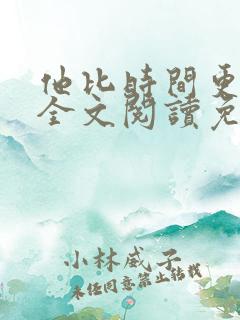 他比時間更
全文閱讀免
小林威子
未经同意禁止转载